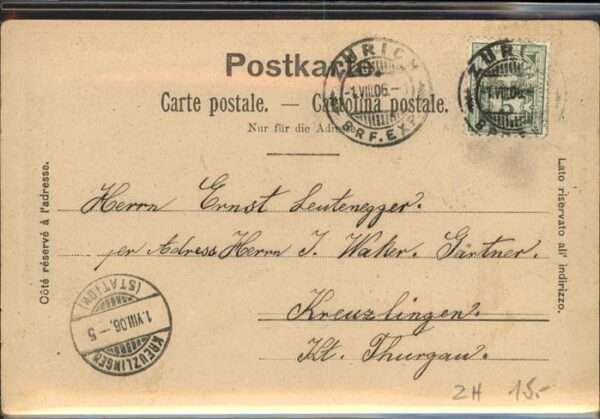 Postkarte.
Carte postale. — Cartolina postale.
Nur für die Adresse
ZÜRICH
-1.VIII.06.-
BRF.EXP.
ZÜRI
-1.VIII.06.-
5
Côté réservé à l'adresse.
Lato riservato all' indirizzo.
Herrn Ernst Leutenegger.
per Adress Herrn J. Walter. Gärtner.
Kreuzlingen.
Kt. Thurgau.
(STATION)
1.VIII.06.-5
KREUZLINGEN
ZH 15.-